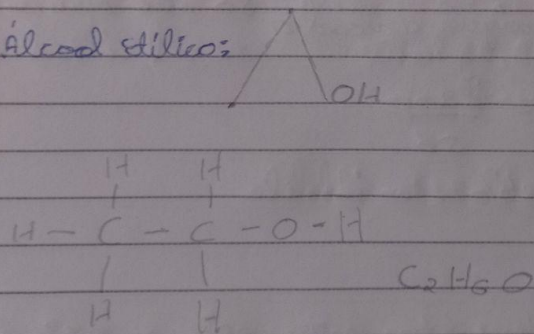 Álcool etílico:
OH
H H
H - C - C - O - H
H H
C2H6O